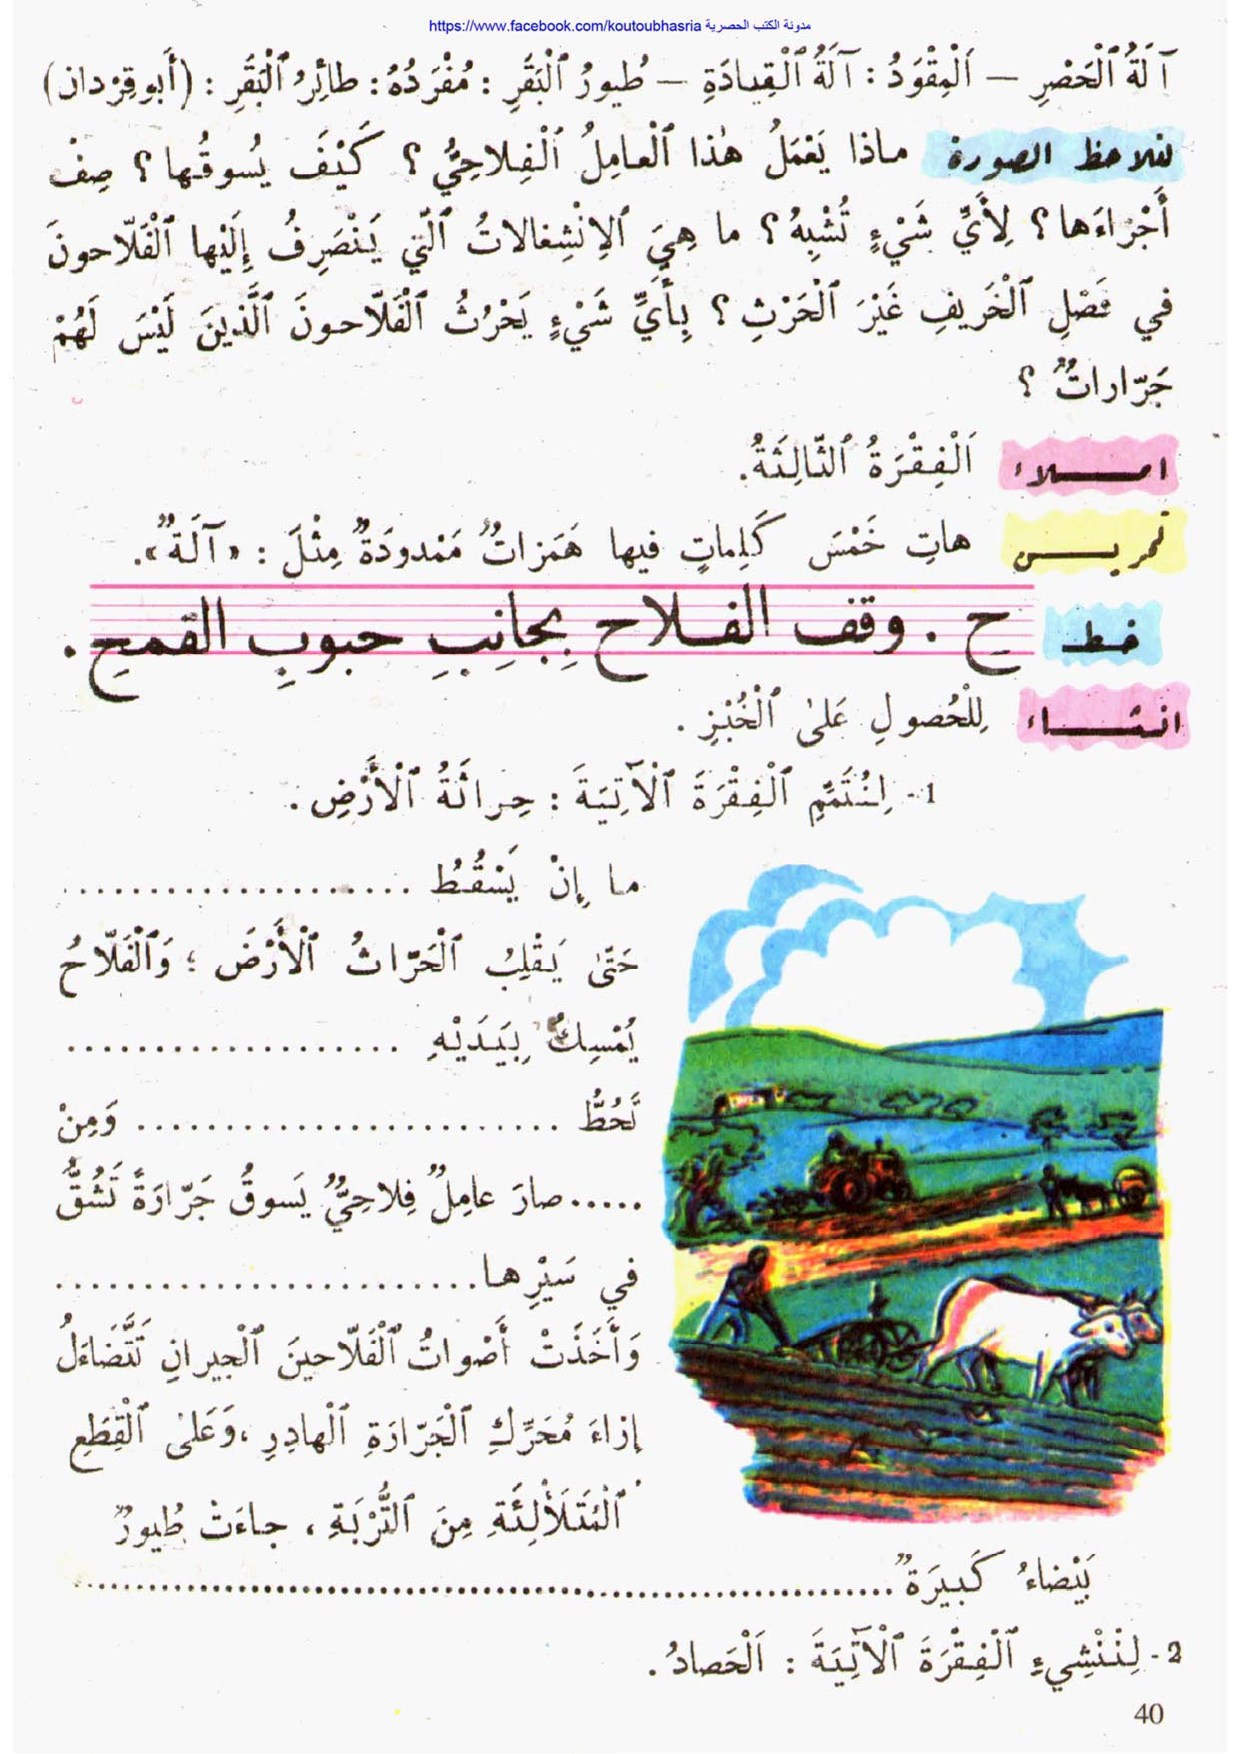 مدونة الكتب الحصرية https://www.facebook.com/koutoubhasria
آلَةُ ٱلْحَصْرِ — اَلْمِقْوَدُ : آلَةُ ٱلْقِيادَةِ — طُيورُ ٱلْبَقَرِ : مُفْرَدُهُ : طائِرُ ٱلْبَقَرِ : (أَبو قِرْدان)
نلاحظ الصورة ماذا يَعْمَلُ هٰذا ٱلْعامِلُ ٱلْفِلاحِيُّ ؟ كَيْفَ يُسوقُها ؟ صِفْ
أَجْزاءَها ؟ لِأَيِّ شَيْءٍ تُشْبِهُ ؟ ما هِيَ ٱلِانْشِغالاتُ ٱلَّتي يَنْصَرِفُ إِلَيْها ٱلْفَلّاحونَ
في فَصْلِ ٱلْخَريفِ غَيْرَ ٱلْحَرْثِ ؟ بِأَيِّ شَيْءٍ يَحْرُثُ ٱلْفَلّاحونَ ٱلَّذينَ لَيْسَ لَهُمْ
جَرّاراتٌ ؟
امـلاء اَلْفِقْرَةُ ٱلثّالِثَةُ.
تمريـن هاتِ خَمْسَ كَلِماتٍ فيها هَمَزاتٌ مَمْدودَةٌ مِثْلَ : «آلَةٌ».
خـط ح . وقف الفـلاح بِجانِبِ حبوبِ القمحِ .
انشـاء لِلْحُصولِ عَلىٰ ٱلْخُبْزِ .
1 - لِنُتَمِّمِ ٱلْفِقْرَةَ ٱلْآتِيَةَ : حِراثَةُ ٱلْأَرْضِ .
ما إِنْ يَسْقُطُ ....................
حَتّىٰ يَقْلِبُ ٱلْحَرّاثُ ٱلْأَرْضَ ؛ وَٱلْفَلّاحُ
يُمْسِكُ بِيَدَيْهِ ...................
تَحُطُّ ......................... وَمِنْ
..... صارَ عامِلٌ فِلاحِيٌّ يَسوقُ جَرّارَةً تَشُقُّ
في سَيْرِها.........................
وَأَخَذَتْ أَصْواتُ ٱلْفَلّاحينَ ٱلْجيرانِ تَتَضَاءَلُ
إِزاءَ مُحَرِّكِ ٱلْجَرّارَةِ ٱلْهادِرِ ، وَعَلىٰ ٱلْقِطَعِ
ٱلْمُتَلَأْلِئَةِ مِنَ ٱلتُّرْبَةِ ، جاءَتْ طُيورٌ
بَيْضاءُ كَبيرَةٌ ..................................................
2 - لِنُنْشِيءِ ٱلْفِقْرَةَ ٱلْآتِيَةَ : اَلْحَصادُ .
40